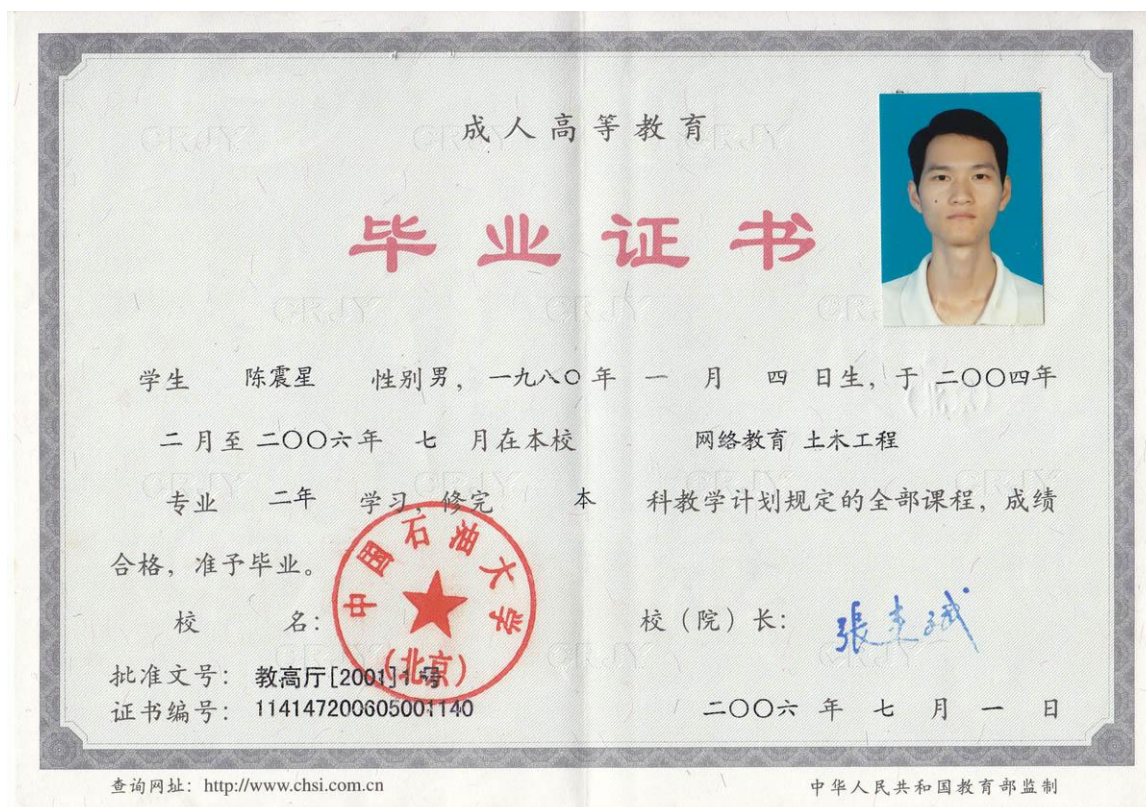 成人高等教育
毕业证书
学生 陈震星 性别男，一九八〇年 一 月 四 日生，于 二〇〇四年
二月至 二〇〇六年 七 月在本校 网络教育 土木工程
专业 二年 学习，修完 本 科教学计划规定的全部课程，成绩
合格，准予毕业。
中国石油大学
（北京）
校 名： 校（院）长： 張来斌
批准文号： 教高厅[2001]1号
证书编号： 114147200605001140 二〇〇六 年 七 月 一 日
查询网址：http://www.chsi.com.cn 中华人民共和国教育部监制
CRJY